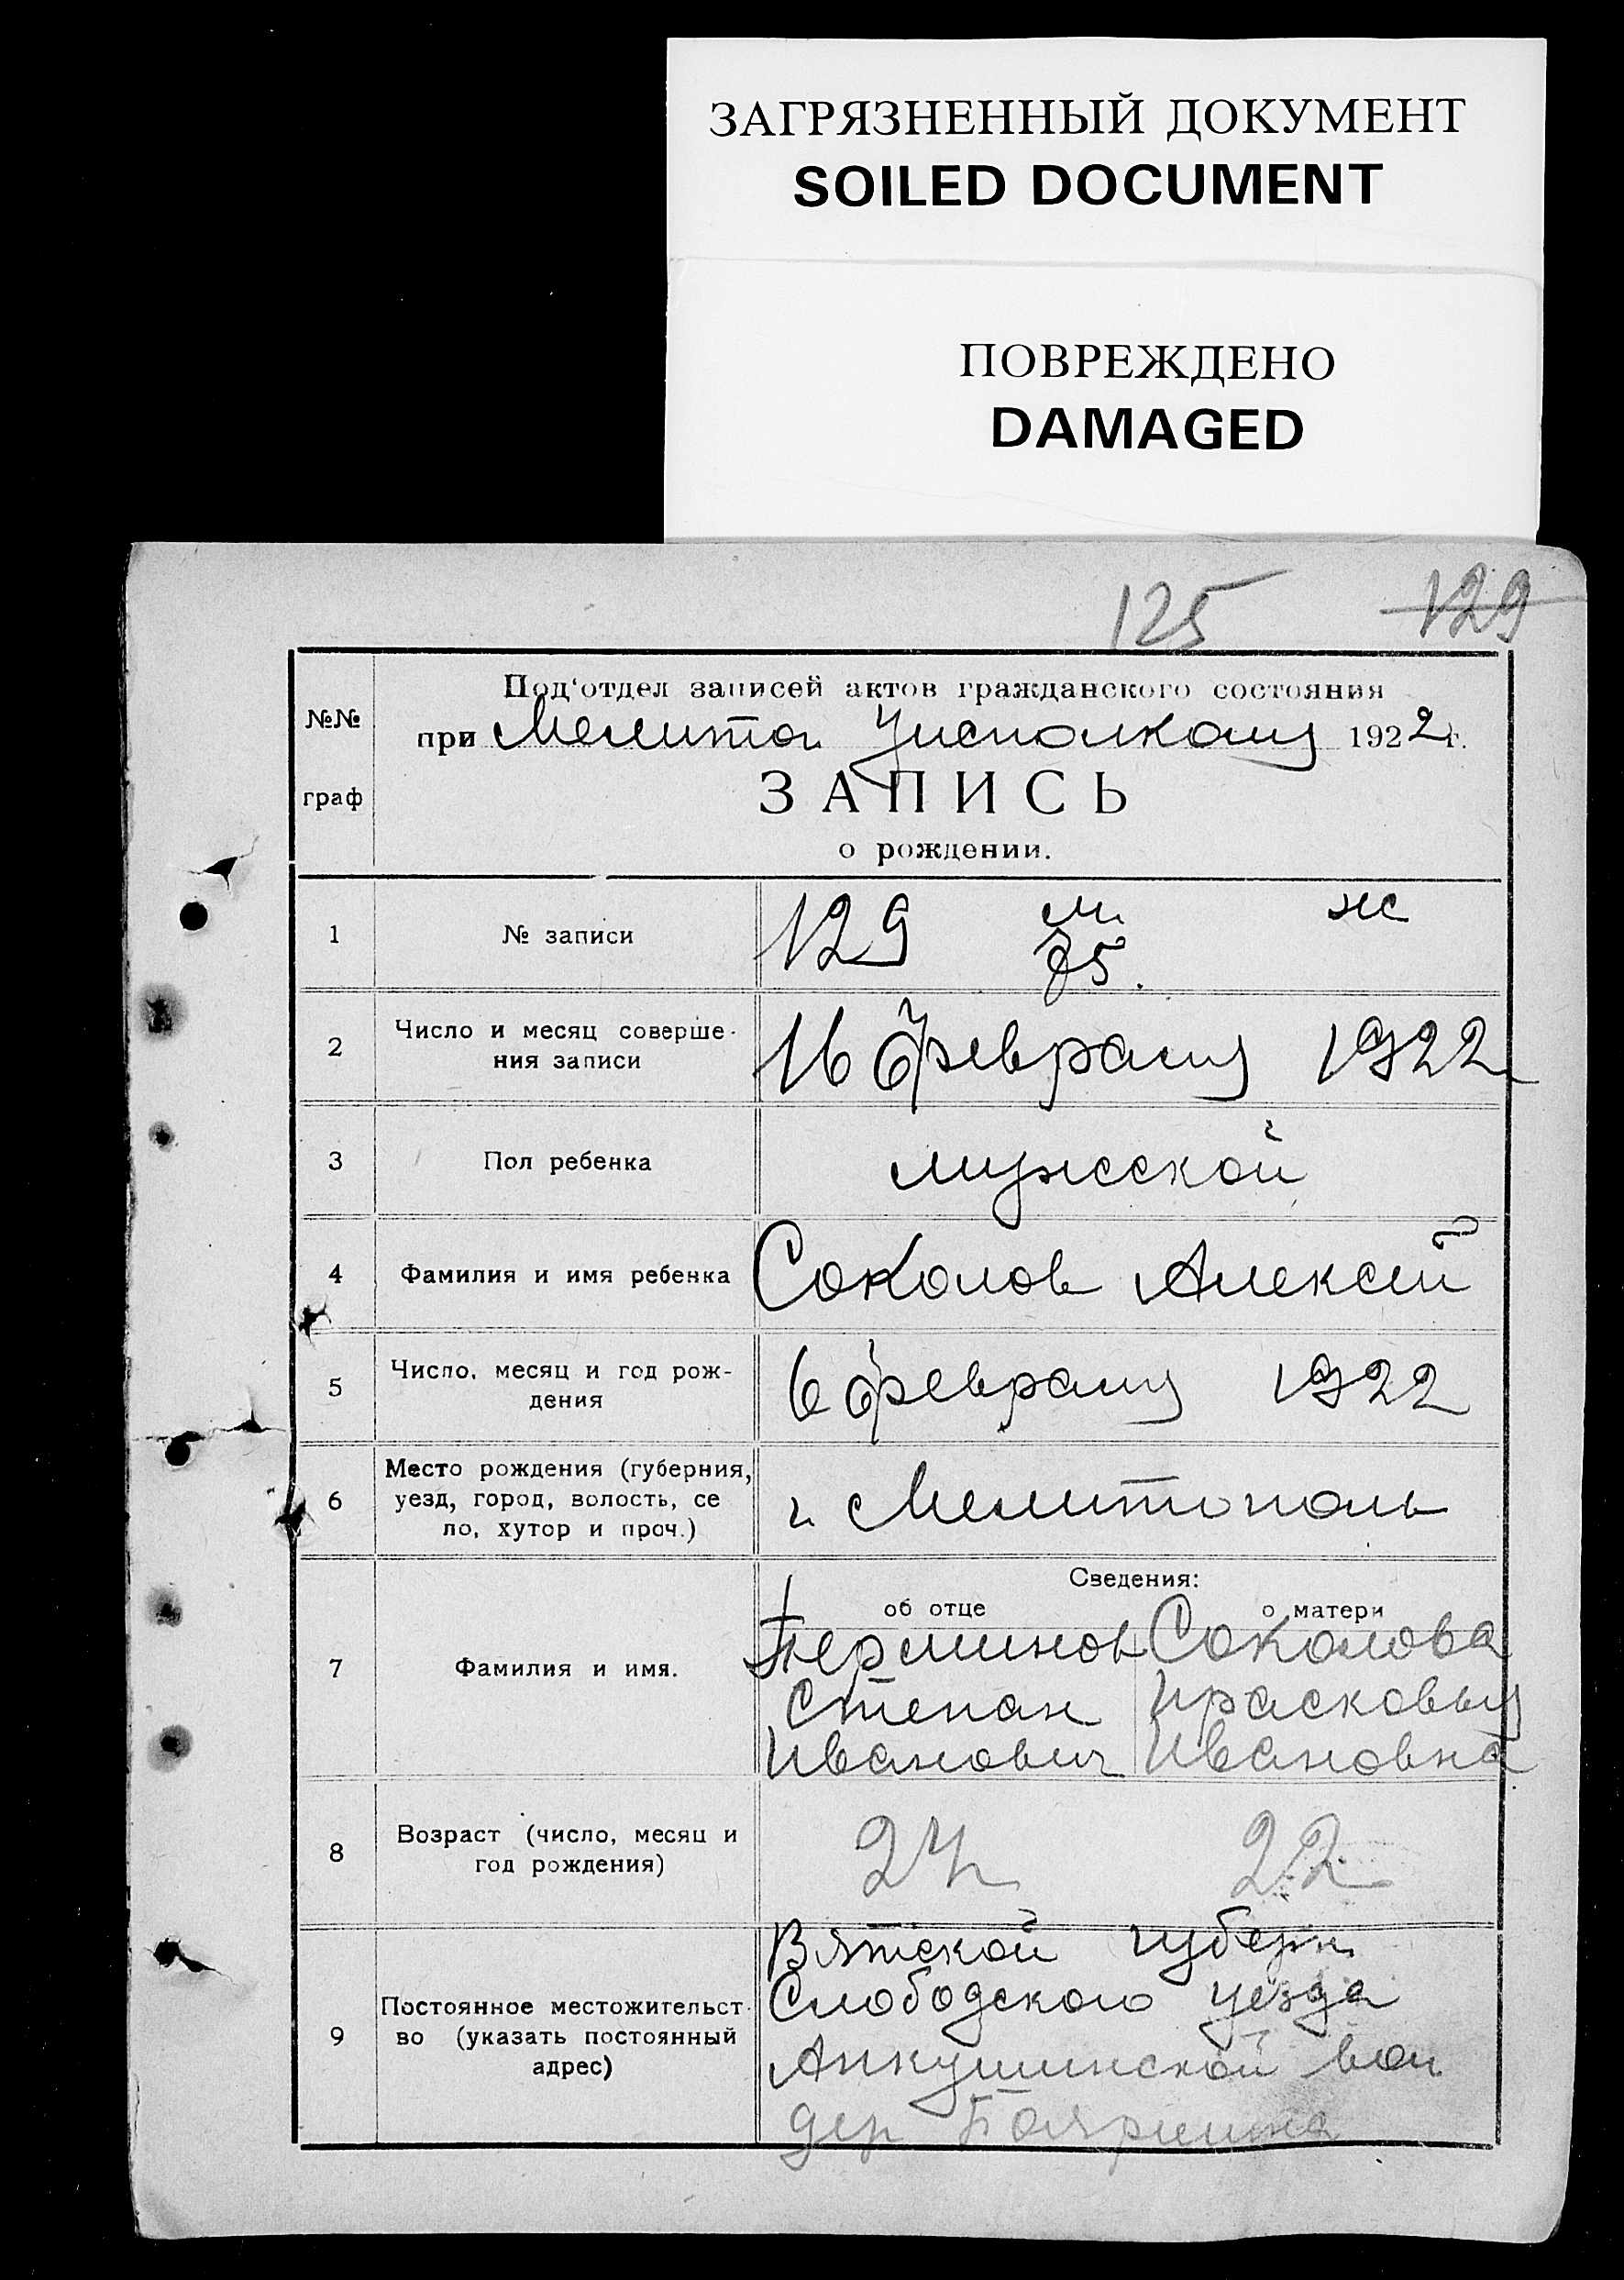 ЗАГРЯЗНЕННЫЙ ДОКУМЕНТ
SOILED DOCUMENT
ПОВРЕЖДЕНО
DAMAGED
125 129
Под'отдел записей актов гражданского состояния
№№
при Мелитоп Уисполкому 1922 г.
граф
ЗАПИСЬ
о рождении.
м ж
1 № записи 129
75.
2 Число и месяц соверше-
ния записи
16 февраля 1922
3 Пол ребенка мужской
4 Фамилия и имя ребенка Соколов Алексей
5 Число, месяц и год рож-
дения
6 февраля 1922
6 Место рождения (губерния,
уезд, город, волость, се
ло, хутор и проч.)
г. Мелитополь
Сведения:
об отце о матери
7 Фамилия и имя.
Перминов Соколова
Степан Прасковья
Иванович Ивановна
8 Возраст (число, месяц и
год рождения)
24 22
9 Постоянное местожительст-
во (указать постоянный
адрес)
Вятской губерн
Слободского уезда
вол
дер